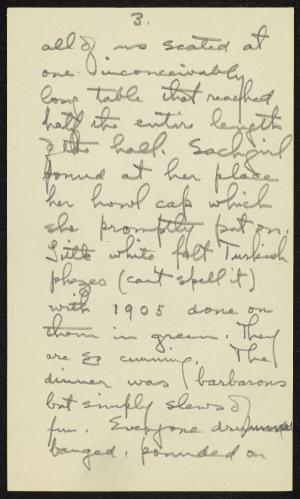 3.
all of us seated at
one inconceivably
long table that reached
half the entire length
of the hall. Each girl
found at her place
her howl cap which
she promptly put on.
white felt Turkish
phezes (can't spell it)
with 1905 done on
them in green. They
are so cunning. The
dinner was barbarous
but simply slews of
fun. Everyone drummed
banged, pounded on